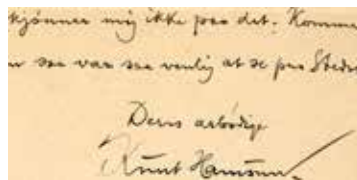 kjønner mig ikke paa det. Komme
saa var saa venlig at se paa Stedet
Deres ærbødige
Knut Hamsun